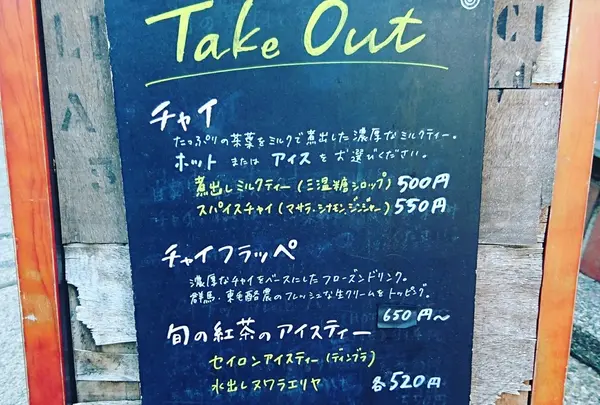 Take Out
チャイ
たっぷりの茶葉をミルクで煮出した濃厚なミルクティー。
ホット または アイス をお選びください。
煮出しミルクティー(三温糖シロップ) 500円
スパイスチャイ(マサラ・シナモン・ジンジャー) 550円
チャイフラッペ
濃厚なチャイをベースにしたフローズンドリンク。
群馬・東毛酪農のフレッシュな生クリームをトッピング。
650円〜
旬の紅茶のアイスティー
セイロンアイスティー(ディンブラ)
水出しヌワラエリヤ 各520円